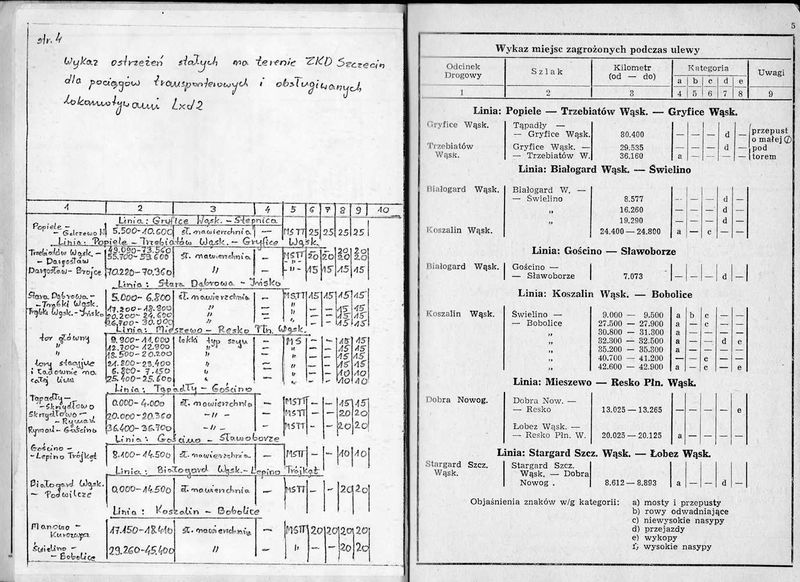 str. 4
Wykaz ostrzeżeń stałych na terenie ZKD Szczecin
dla pociągów transporterowych i obsługiwanych
lokomotywami Lxd2
1 2 3 4 5 6 7 8 9 10
Linia: Gryfice Wąsk. - Stepnica
Popiele -
- Golczewo W. 5.500-10.600 st. nawierzchnia — MSTT 25 25 25 25
Linia: Popiele - Trzebiatów Wąsk. - Gryfice Wąsk.
Trzebiatów Wąsk. - 20 20
- Dargosław 55.700-59.600 st. nawierzchnia — MSTT 20 20 20 20
Dargosław - Brojce 70.220-70.360 " — -"- 15 15 15 15
Linia: Stara Dąbrowa - Ińsko
Stara Dąbrowa - 5.000-6.800 st. nawierzchnia — MSTT 15 15 15 15
- Trąbki Wąsk. 17.200-18.900 " — " — — 15 15
Trąbki Wąsk. - Ińsko 20.200-24.600 " — " — — 15 15
26.700-30.000 " — " — — 15 15
Linia: Mieszewo - Resko Płn. Wąsk.
tor główny 9.900-11.000 lekki typ szyn — MS — — 15 15
12.700-12.900 " — " — — 15 15
18.500-20.200 " — " — — 15 15
tory stacyjne 21.800-23.400 " — " — — 15 15
i ładownie na 6.800-7.150 " — " — — 10 10
całej linii 25.400-25.600 " — " — — 10 10
Linia: Tapadły - Gościno
Tapadły -
- Skrzydłowo 0.000-4.000 st. nawierzchnia — MSTT — — 15 15
Skrzydłowo -
- Rymań 20.000-20.360 -"- — MSTT — — 20 20
Rymań - Gościno 36.400-36.700 -"- — MSTT — — 20 20
Linia: Gościno - Sławoborze
Gościno -
- Lepino Trójkąt 8.100-14.500 st. nawierzchnia — MSTT — — 10 10
Linia: Białogard Wąsk. - Lepino Trójkąt
Białogard Wąsk.
- Podwilcze 0.000-14.500 st. nawierzchnia — MSTT — — 20 20
Linia: Koszalin - Bobolice
Manowo -
- Kurozwęcz 17.150-18.410 st. nawierzchnia — MSTT 20 20 20 20
Świelino -
- Bobolice 29.260-45.400 " — " — — 20 20
5
Wykaz miejsc zagrożonych podczas ulewy
Odcinek Drogowy Szlak Kilometr (od — do) Kategoria Uwagi
a b c d e
1 2 3 4 5 6 7 8 9
Linia: Popiele — Trzebiatów Wąsk. — Gryfice Wąsk.
Gryfice Wąsk. Tąpadły —
— Gryfice Wąsk. 30.400 — — — d — przepust
o małej
Trzebiatów Gryfice Wąsk. — 29.535 — — — d — pod
Wąsk. — Trzebiatów W. 36.160 a — — — — torem
Linia: Białogard Wąsk. — Świelino
Białogard Wąsk. Białogard W. —
— Świelino 8.577 — — — d —
„ 16.260 — — — d —
„ 19.290 — — — d —
Koszalin Wąsk. „ 24.400 — 24.800 a — c — —
Linia: Gościno — Sławoborze
Białogard Wąsk. Gościno —
— Sławoborze 7.073 — — — d —
Linia: Koszalin Wąsk. — Bobolice
Koszalin Wąsk. Świelino — 9.000 — 9.500 a b c — —
— Bobolice 27.500 — 27.900 a — c — —
„ 30.800 — 31.300 a — — — —
„ 32.300 — 32.500 a — — d e
„ 35.200 — 35.300 a — — — —
„ 40.700 — 41.200 — — c — —
„ 42.600 — 42.900 a — c — e
Linia: Mieszewo — Resko Płn. Wąsk.
Dobra Nowog. Dobra Now. —
— Resko 13.025 — 13.265 — — — — e
Łobez Wąsk. —
— Resko Płn. W. 20.025 — 20.125 a — — — —
Linia: Stargard Szcz. Wąsk. — Łobez Wąsk.
Stargard Szcz. Stargard Szcz.
Wąsk. Wąsk. — Dobra
Nowog . 8.612 — 8.893 a — — d —
Objaśnienia znaków w/g kategorii: a) mosty i przepusty
b) rowy odwadniające
c) niewysokie nasypy
d) przejazdy
e) wykopy
f) wysokie nasypy